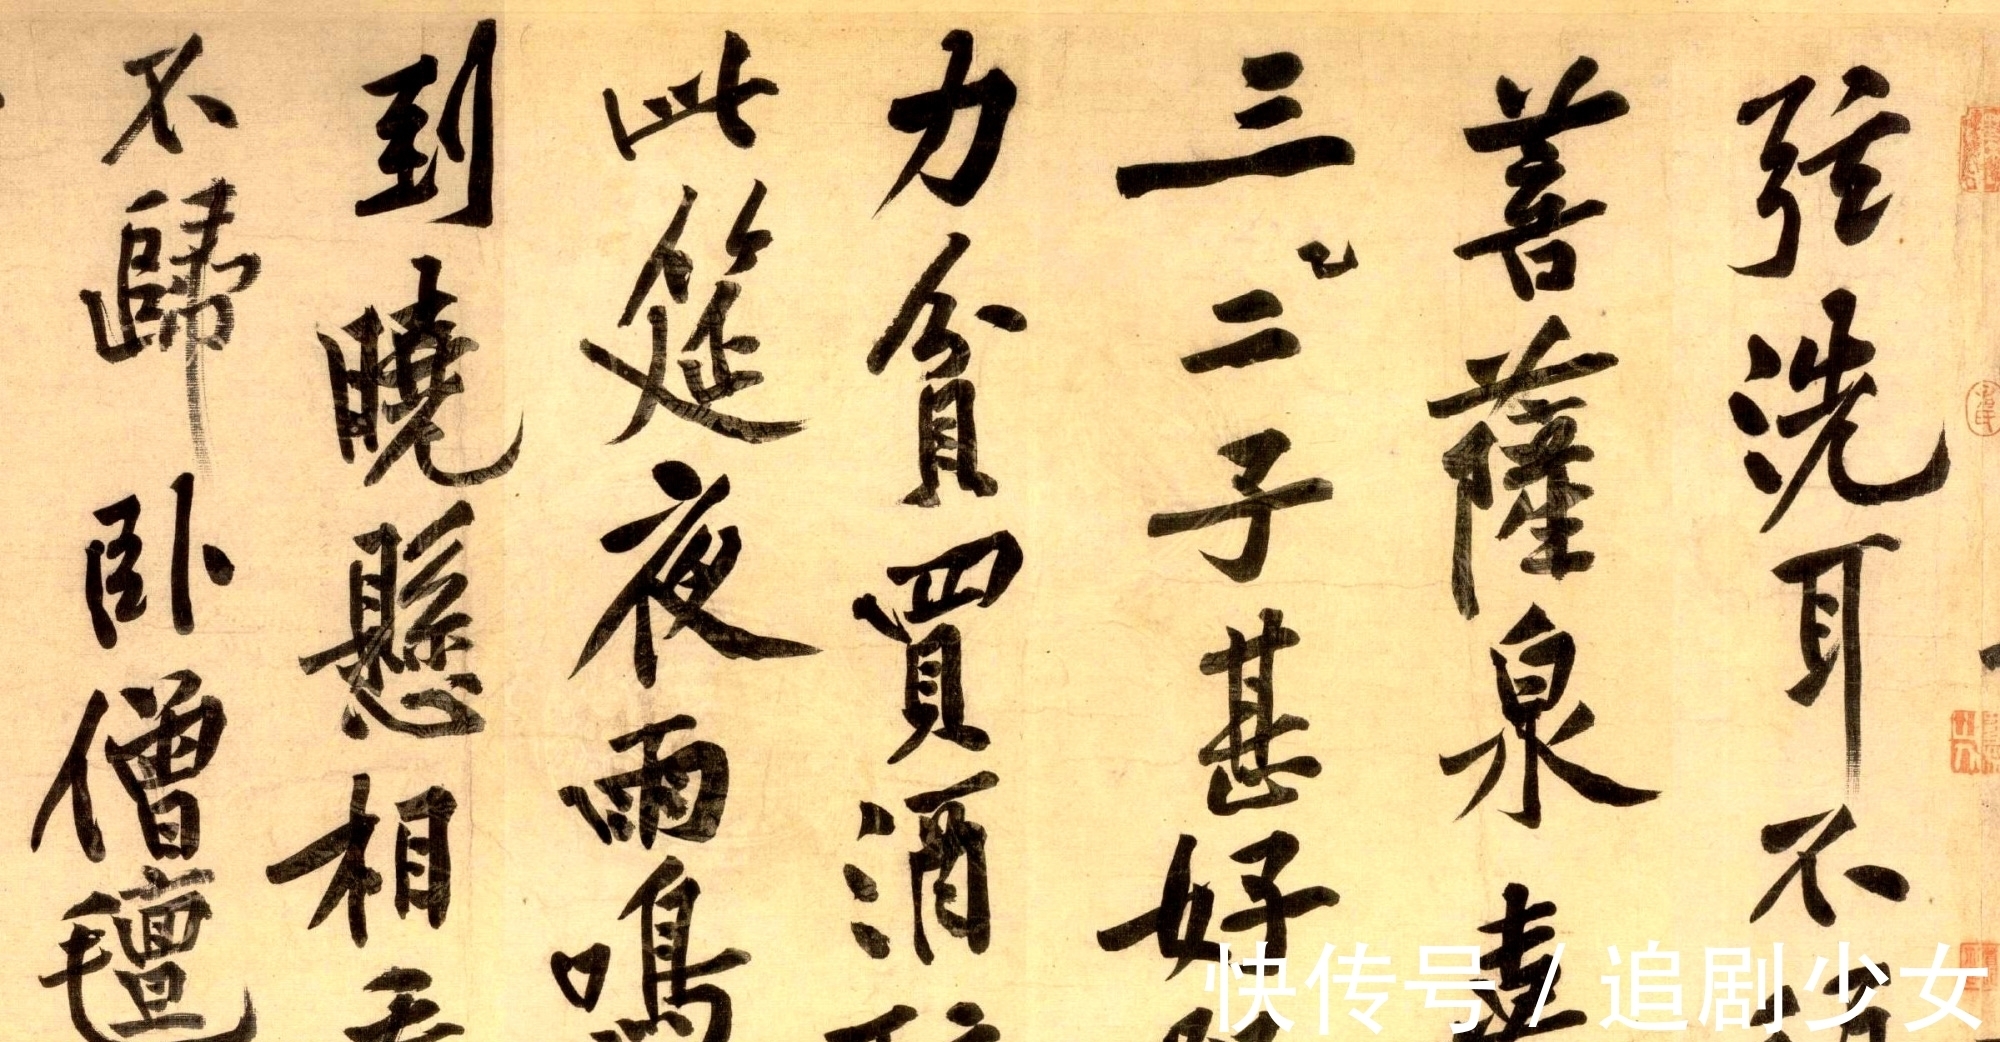 弦洗耳不
菩薩泉嘉
三二子甚好
力貧買酒
此筵夜雨鳴
到曉懸相
不歸卧僧氈
快传号 / 追剧少女